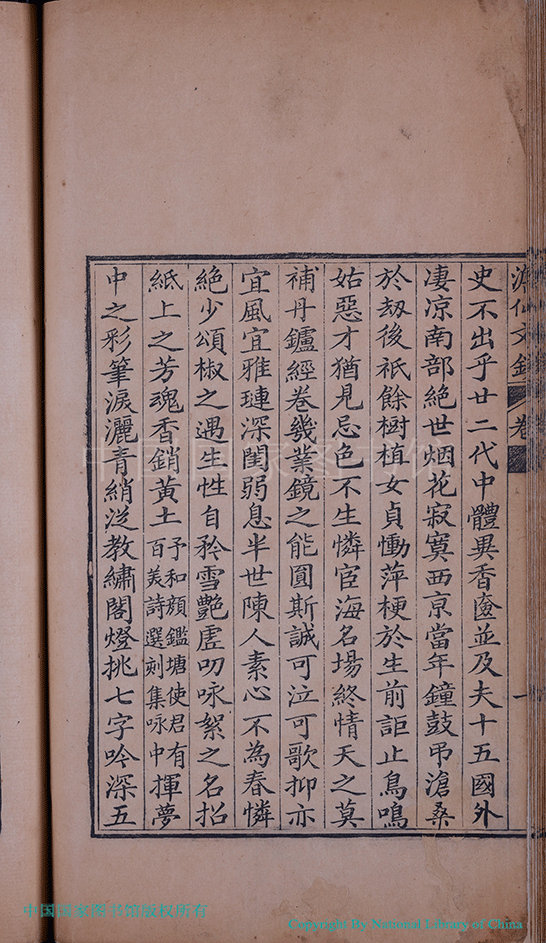 史不出乎廿二代中體異香奩並及夫十五國外
凄凉南部絶世烟花寂寞西亰當年鐘鼓弔滄桑
於刼後祇餘樹植女貞慟萍梗於生前詎止鳥鳴
姑惡才猶見忌色不生憐宦海名場終情天之莫
補丹鑪經卷幾業鏡之能圓斯誠可泣可歌抑亦
宜風宜雅璉深閨弱息半世陳人素心不為春憐
絶少頌椒之遇生性自矜雪艶虗叨咏絮之名招
紙上之芳魂香銷黃土予和顔鑑塘使君有百美詩選刻集咏中揮夢
中之彩筆淚灑青綃從教繡閣燈挑七字吟深五
文錄 卷
中国国家图书馆
中国国家图书馆版权所有
Copyright By National Library of China